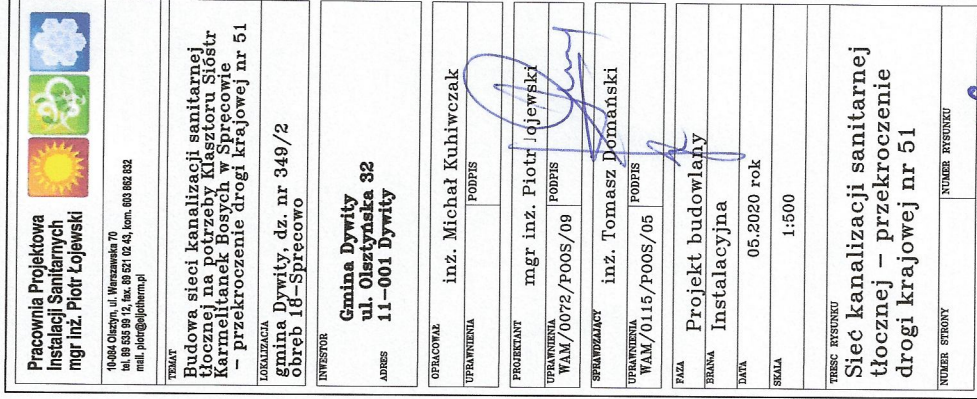 Pracownia Projektowa
Instalacji Sanitarnych
mgr inż. Piotr Łojewski
10-084 Olsztyn, ul. Warszawska 70
tel. 89 535 99 12, fax. 89 621 02 43, kom. 603 862 832
mail. piotr@eljotherm.pl
TEMAT
Budowa sieci kanalizacji sanitarnej
tłocznej na potrzeby Klasztoru Sióstr
Karmelitanek Bosych w Spręcowie
– przekroczenie drogi krajowej nr 51
LOKALIZACJA
gmina Dywity, dz. nr 349/2
obręb 18-Spręcowo
INWESTOR
Gmina Dywity
ul. Olsztyńska 32
ADRES
11-001 Dywity
OPRACOWAŁ
inż. Michał Kuhiwczak
UPRAWNIENIA
PODPIS
PROJEKTANT
mgr inż. Piotr Łojewski
UPRAWNIENIA
PODPIS
WAM/0072/POOS/09
SPRAWDZAJĄCY
inż. Tomasz Domański
UPRAWNIENIA
PODPIS
WAM/0115/POOS/05
FAZA
Projekt budowlany
BRANŻA
Instalacyjna
DATA
05.2020 rok
SKALA
1:500
TRESC RYSUNKU
Sieć kanalizacji sanitarnej
tłocznej – przekroczenie
drogi krajowej nr 51
NUMER STRONY
NUMER RYSUNKU